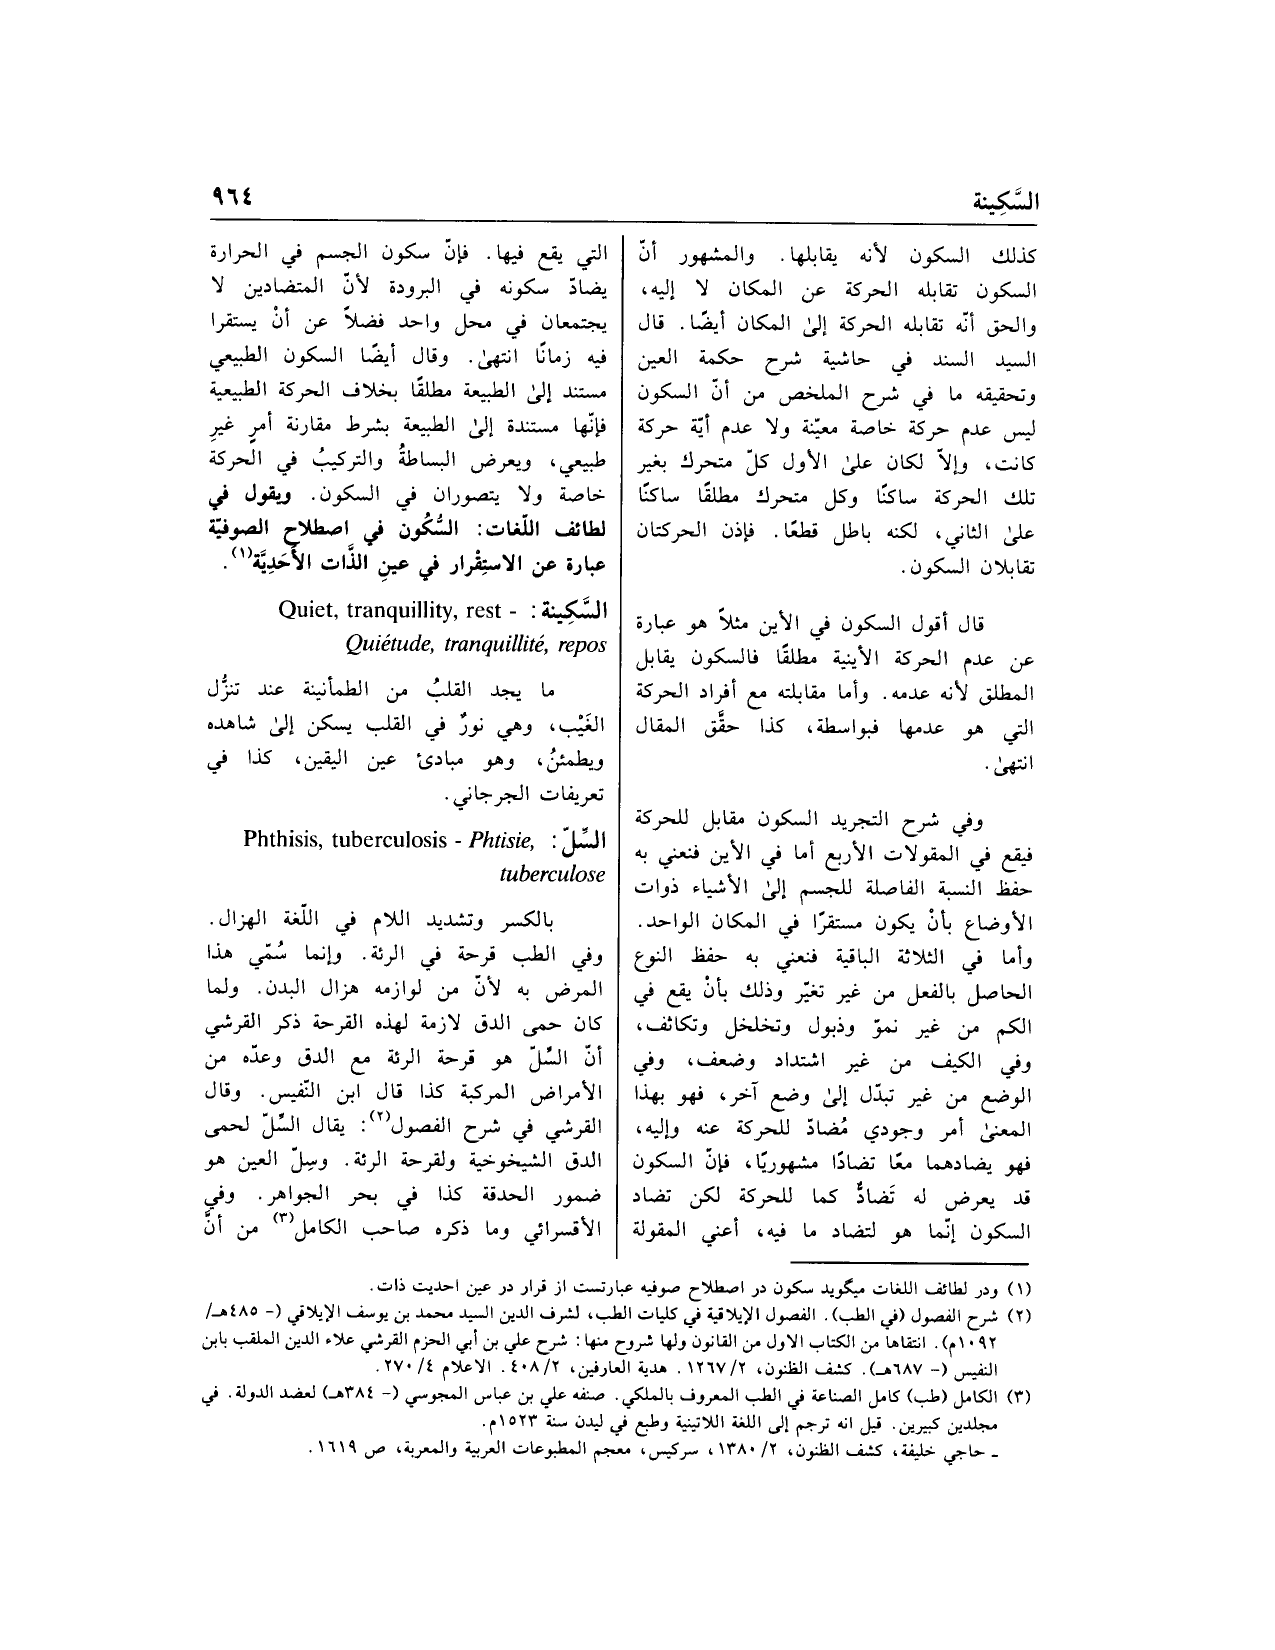 السَّكِينة
٩٦٤
كذلك السكون لأنه يقابلها. والمشهور أنّ
السكون تقابله الحركة عن المكان لا إليه،
والحق أنّه تقابله الحركة إلىٰ المكان أيضًا. قال
السيد السند في حاشية شرح حكمة العين
وتحقيقه ما في شرح الملخص من أنّ السكون
ليس عدم حركة خاصة معيّنة ولا عدم أيّة حركة
كانت، وإلاّ لكان علىٰ الأول كلّ متحرك بغير
تلك الحركة ساكنًا وكل متحرك مطلقًا ساكنًا
علىٰ الثاني، لكنه باطل قطعًا. فإذن الحركتان
تقابلان السكون.
قال أقول السكون في الأين مثلاً هو عبارة
عن عدم الحركة الأينية مطلقًا فالسكون يقابل
المطلق لأنه عدمه. وأما مقابلته مع أفراد الحركة
التي هو عدمها فبواسطة، كذا حقَّق المقال
انتهىٰ.
وفي شرح التجريد السكون مقابل للحركة
فيقع في المقولات الأربع أما في الأين فنعني به
حفظ النسبة الفاصلة للجسم إلىٰ الأشياء ذوات
الأوضاع بأنْ يكون مستقرًا في المكان الواحد.
وأما في الثلاثة الباقية فنعني به حفظ النوع
الحاصل بالفعل من غير تغيّر وذلك بأنْ يقع في
الكم من غير نموّ وذبول وتخلخل وتكاثف،
وفي الكيف من غير اشتداد وضعف، وفي
الوضع من غير تبدّل إلىٰ وضع آخر، فهو بهذا
المعنىٰ أمر وجودي مُضادّ للحركة عنه وإليه،
فهو يضادهما معًا تضادًا مشهوريًا، فإنّ السكون
قد يعرض له تَضادٌّ كما للحركة لكن تضاد
السكون إنّما هو لتضاد ما فيه، أعني المقولة
التي يقع فيها. فإنّ سكون الجسم في الحرارة
يضادّ سكونه في البرودة لأنّ المتضادين لا
يجتمعان في محل واحد فضلاً عن أنْ يستقرا
فيه زمانًا انتهىٰ. وقال أيضًا السكون الطبيعي
مستند إلىٰ الطبيعة مطلقًا بخلاف الحركة الطبيعية
فإنّها مستندة إلىٰ الطبيعة بشرط مقارنة أمرٍ غيرِ
طبيعي، ويعرض البساطةُ والتركيبُ في الحركة
خاصة ولا يتصوران في السكون. ويقول في
لطائف اللّغات: السُّكُون في اصطلاح الصوفيّة
عبارة عن الاستِقْرار في عينِ الذَّات الأَحَدِيَّة(١).
السَّكِينة: - Quiet, tranquillity, rest
Quiétude, tranquillité, repos
ما يجد القلبُ من الطمأنينة عند تنزُّل
الغَيْب، وهي نورٌ في القلب يسكن إلىٰ شاهده
ويطمئنُ، وهو مبادئ عين اليقين، كذا في
تعريفات الجرجاني.
السِّلّ: Phthisis, tuberculosis - Phtisie,
tuberculose
بالكسر وتشديد اللام في اللّغة الهزال.
وفي الطب قرحة في الرئة. وإنما سُمّي هذا
المرض به لأنّ من لوازمه هزال البدن. ولما
كان حمى الدق لازمة لهذه القرحة ذكر القرشي
أنّ السِّلّ هو قرحة الرئة مع الدق وعدّه من
الأمراض المركبة كذا قال ابن النّفيس. وقال
القرشي في شرح الفصول(٢): يقال السِّلّ لحمى
الدق الشيخوخية ولقرحة الرئة. وسِلّ العين هو
ضمور الحدقة كذا في بحر الجواهر. وفي
الأقسرائي وما ذكره صاحب الكامل(٣) من أنَّ
(١) ودر لطائف اللغات ميگويد سكون در اصطلاح صوفيه عبارتست از قرار در عين احديت ذات.
(٢) شرح الفصول (في الطب). الفصول الإيلاقية في كليات الطب، لشرف الدين السيد محمد بن يوسف الإيلاقي (- ٤٨٥هـ/
١٠٩٢م). انتقاها من الكتاب الاول من القانون ولها شروح منها: شرح علي بن أبي الحزم القرشي علاء الدين الملقب بابن
النفيس (- ٦٨٧هـ). كشف الظنون، ٢/ ١٢٦٧. هدية العارفين، ٢/ ٤٠٨. الاعلام ٤/ ٢٧٠.
(٣) الكامل (طب) كامل الصناعة في الطب المعروف بالملكي. صنفه علي بن عباس المجوسي (- ٣٨٤هـ) لعضد الدولة. في
مجلدين كبيرين. قيل انه ترجم إلى اللغة اللاتينية وطبع في ليدن سنة ١٥٢٣م.
ـ حاجي خليفة، كشف الظنون، ٢/ ١٣٨٠، سركيس، معجم المطبوعات العربية والمعربة، ص ١٦١٩.